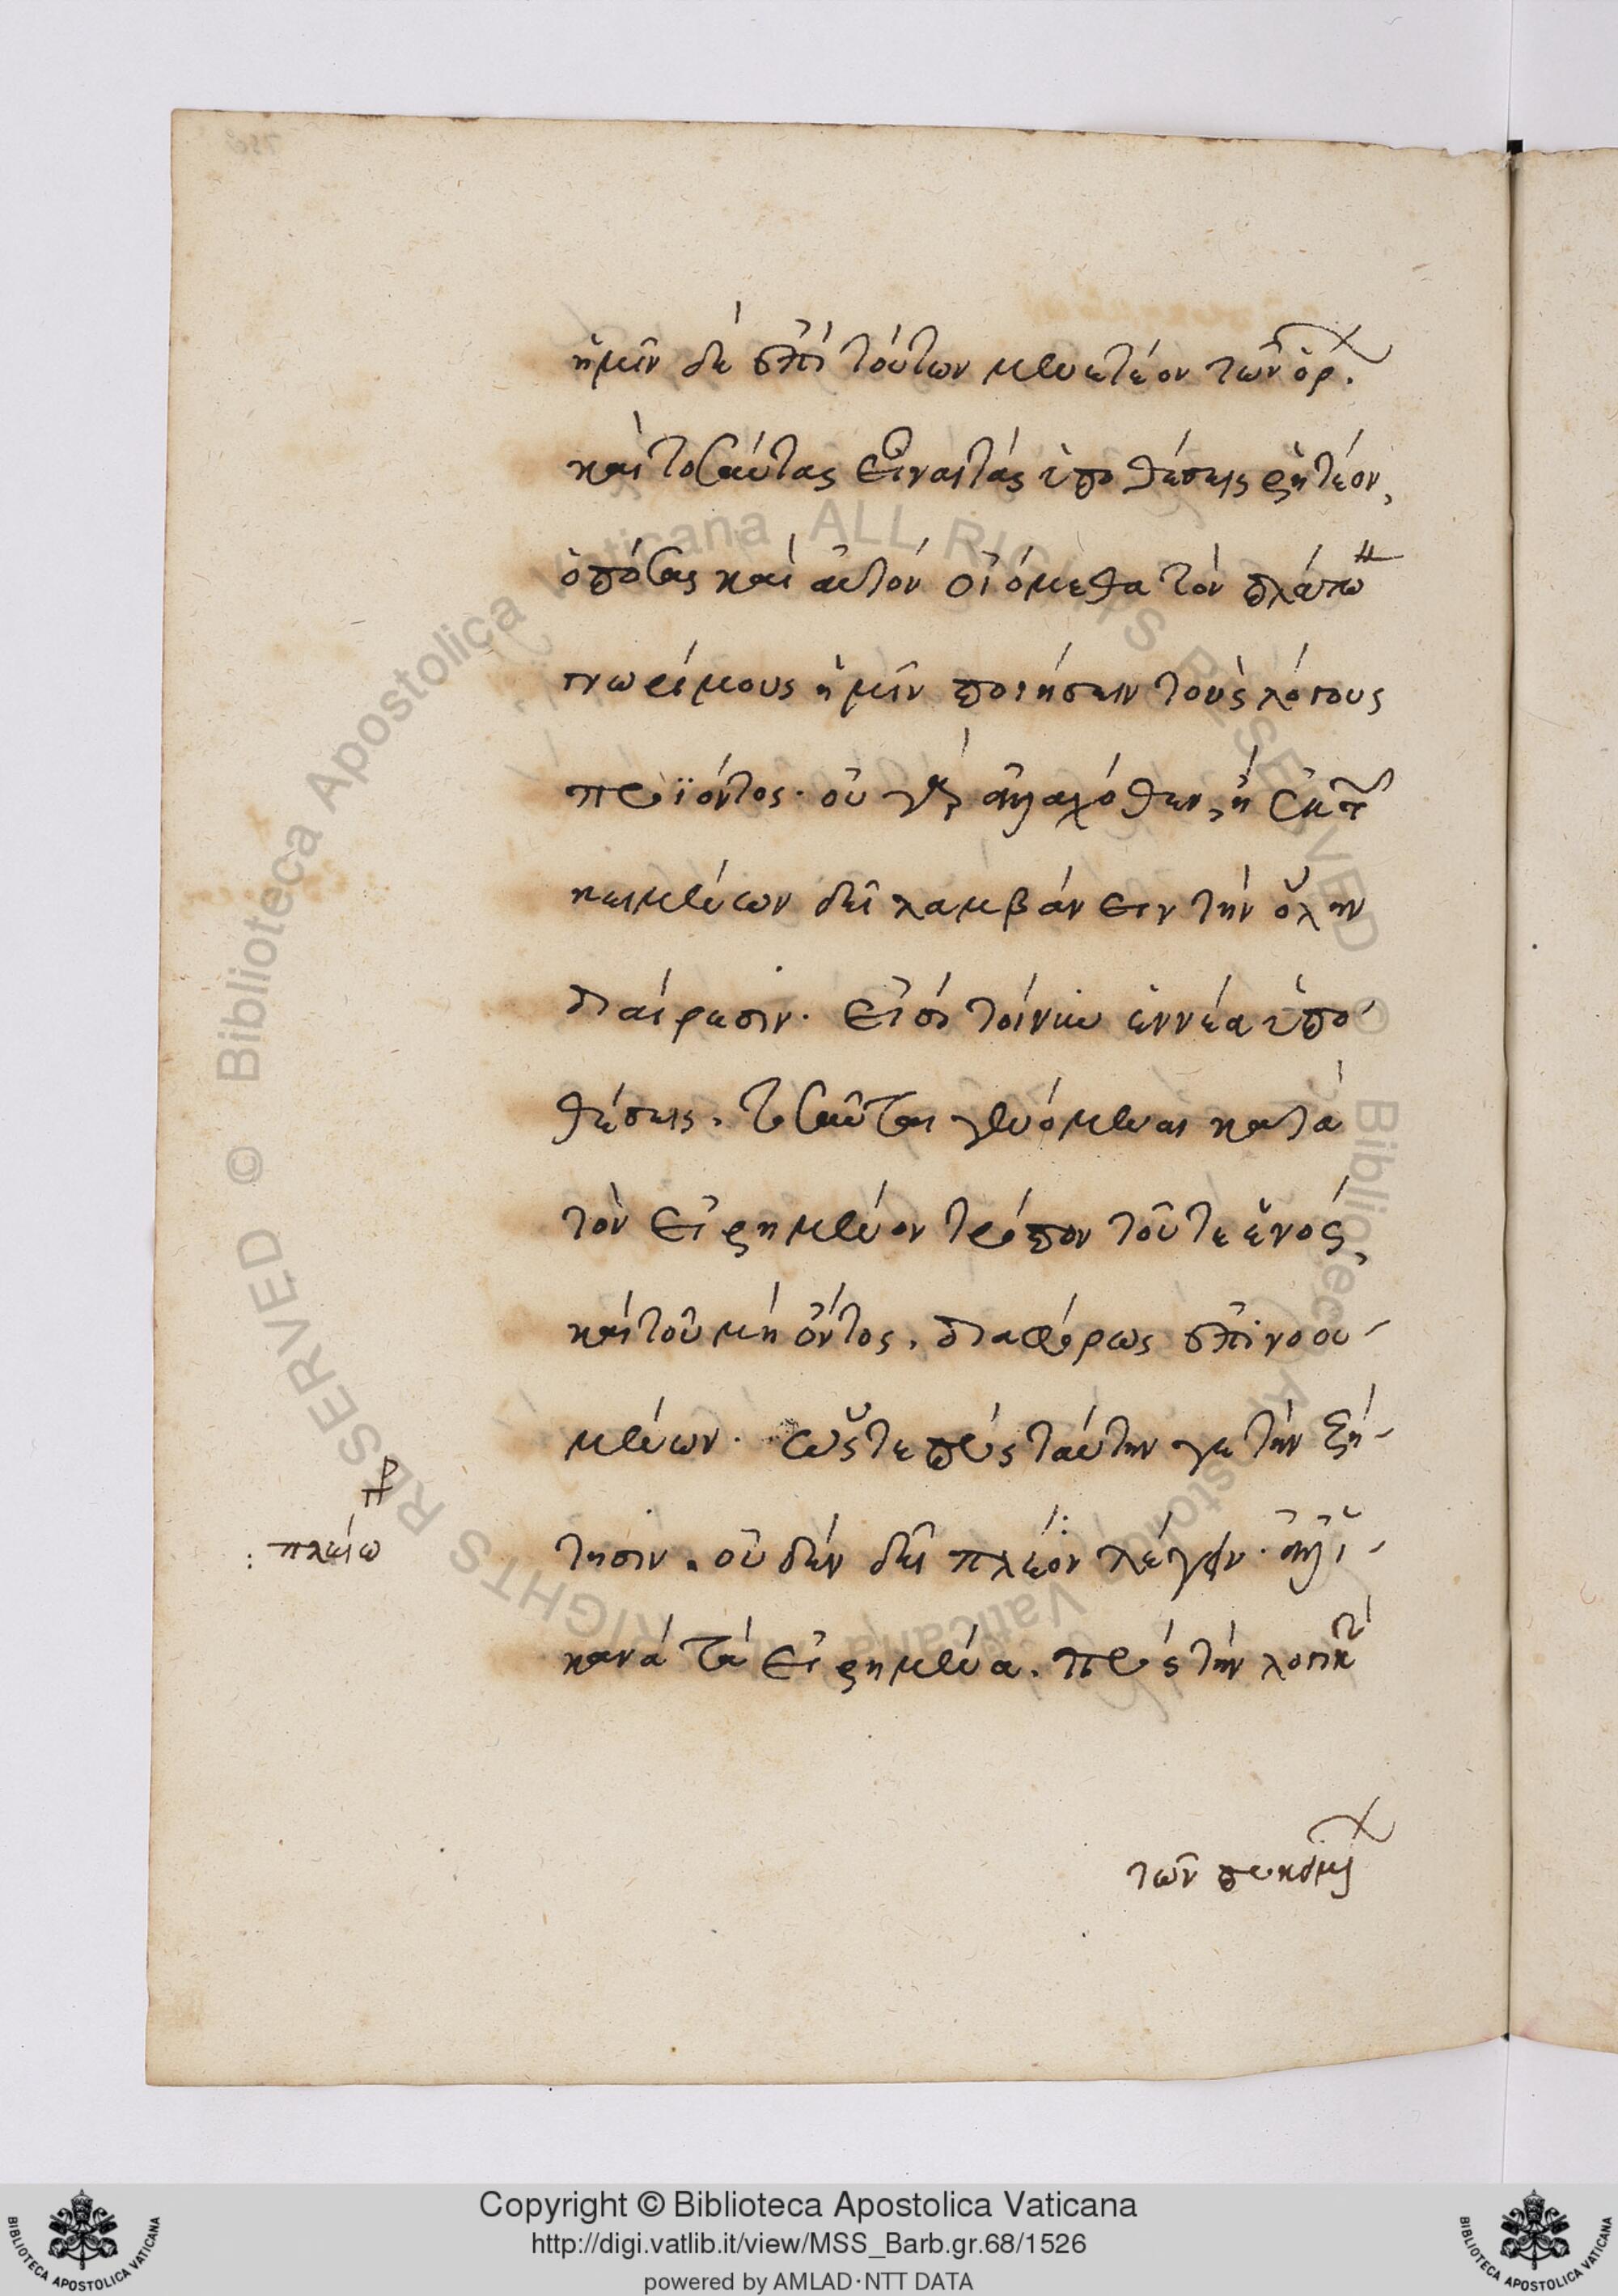 ἡμῖν δὲ ἐπὶ τούτων μενετέον τῶν ὁρ.
καὶ τοσαύτας εἶναι τὰς ὑποθέσεις ῥητέον,
ὁπόσας καὶ αὐτὸν οἰόμεθα τὸν πλάτω
γνωρίμους ἡμῖν ποιήσειν τοὺς λόγους
προϊόντος. οὐ γὰρ ἀλλαχόθεν, ἢ ἐκ τ
κειμένων δεῖ λαμβάνειν τὴν ὅλην
διαίρεσιν. εἰσὶ τοίνυν ἐννέα ὑπο
θέσεις. τοσαῦται γενόμεναι κατὰ
τὸν εἰρημένον τρόπον τοῦ τε ἑνός,
καὶ τοῦ μὴ ὄντος. διαφόρως ἐπινοου-
μένων. ὥστε πρὸς ταύτην γε τὴν ζή-
τησιν. οὐδὲν δεῖ πλέον λέγειν. ἀλλ' ἱ-
κανὰ τὰ εἰρημένα. πρὸς τὴν λογικ
γρ
: πλείω
τῶν προκειμ
Copyright © Biblioteca Apostolica Vaticana
http://digi.vatlib.it/view/MSS_Barb.gr.68/1526
powered by AMLAD·NTT DATA
BIBLIOTECA APOSTOLICA VATICANA
BIBLIOTECA APOSTOLICA VATICANA
© Biblioteca Apostolica Vaticana ALL RIGHTS RESERVED
© Biblioteca Apostolica Vaticana ALL RIGHTS RESERVED